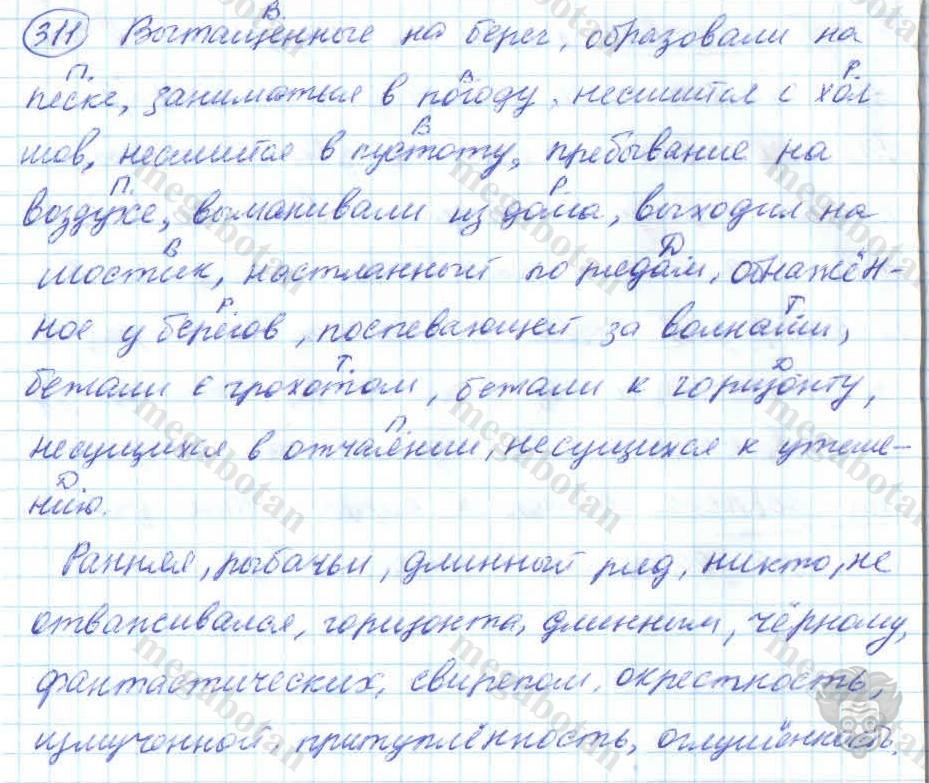 311 Вытащенные на берег, образовали на
песке, заниматься в погоду, несшийся с хол-
мов, несшийся в пустоту, пребывание на
воздухе, выманивали из дома, выходил на
мостик, настланный по рядам, обнажён-
ное у берегов, поспевающей за волнами,
бежали с грохотом, бежали к горизонту,
несущихся в отчаянии, несущихся к утеше-
нию.
Ранняя, рыбачьи, длинный ряд, никто, не
отваживался, горизонта, длинным, чёрному,
фантастических, свирепом, окрестность,
измученной, притуплённость, оглушённость,
megabotan